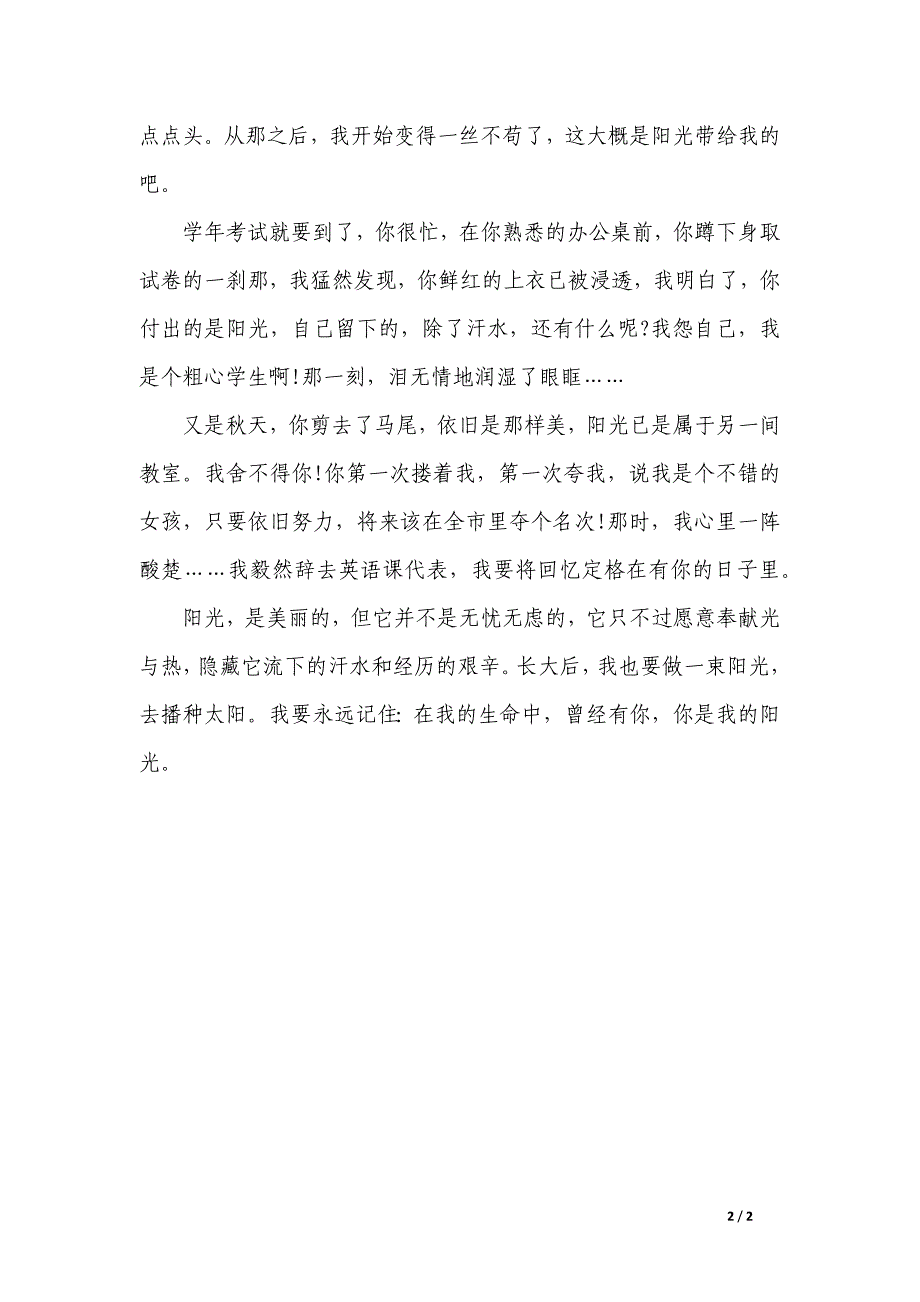 点点头。从那之后，我开始变得一丝不苟了，这大概是阳光带给我的
吧。
学年考试就要到了，你很忙，在你熟悉的办公桌前，你蹲下身取
试卷的一刹那，我猛然发现，你鲜红的上衣已被浸透，我明白了，你
付出的是阳光，自己留下的，除了汗水，还有什么呢?我怨自己，我
是个粗心学生啊!那一刻，泪无情地润湿了眼眶……
又是秋天，你剪去了马尾，依旧是那样美，阳光已是属于另一间
教室。我舍不得你!你第一次搂着我，第一次夸我，说我是个不错的
女孩，只要依旧努力，将来该在全市里夺个名次!那时，我心里一阵
酸楚……我毅然辞去英语课代表，我要将回忆定格在有你的日子里。
阳光，是美丽的，但它并不是无忧无虑的，它只不过愿意奉献光
与热，隐藏它流下的汗水和经历的艰辛。长大后，我也要做一束阳光，
去播种太阳。我要永远记住：在我的生命中，曾经有你，你是我的阳
光。
2 / 2